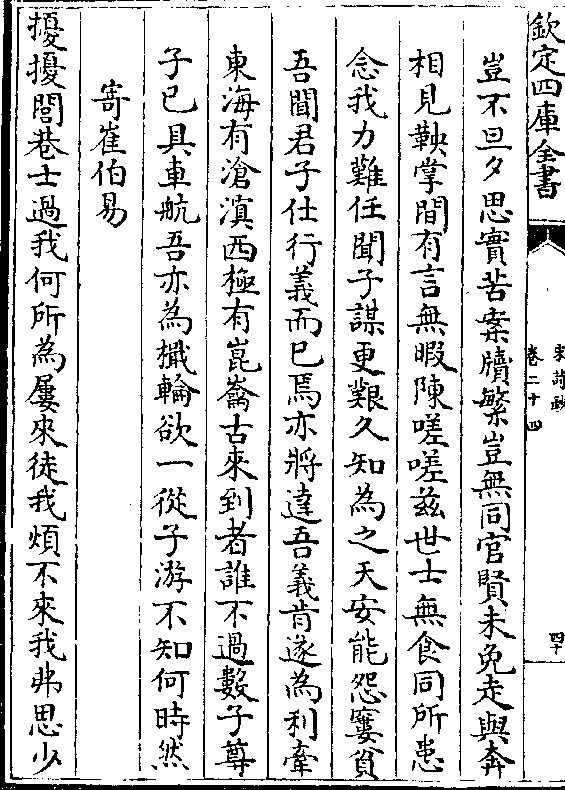 欽定四庫全書
宋詩鈔
卷二十四
四十
豈不旦夕思實苦案牘繁豈無同官賢未免走與奔
相見鞅掌間有言無暇陳嗟嗟兹世士無食同所患
念我力難任聞子謀更艱久知為之天安能怨窶貧
吾聞君子仕行義而已焉亦將達吾義肯遂為利牽
東海有滄溟西極有崑崙古來到者誰不過數子尊
子已具車航吾亦為檝輪欲一從子游不知何時然
寄崔伯易
擾擾閭巷士過我何所為屢來徒我煩不來我弗思少